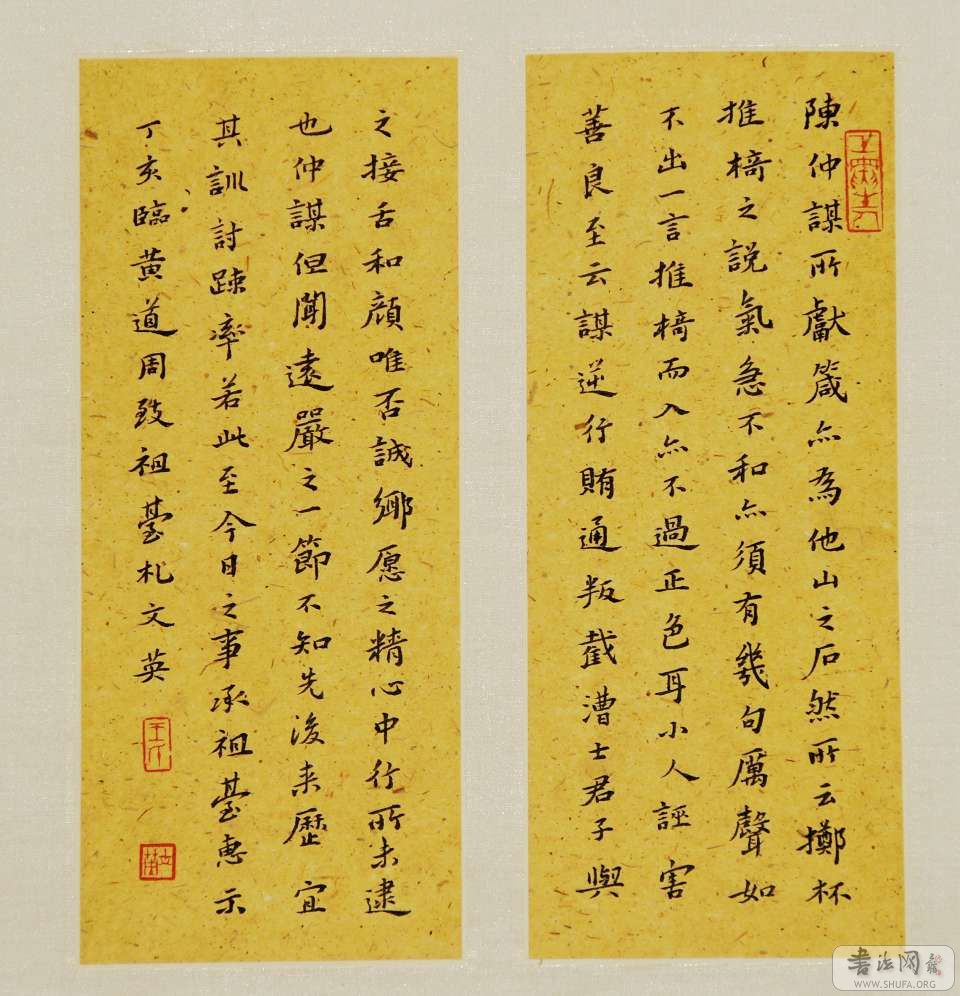 陳仲謀所獻箴亦為他山之石然所云擲杯
推椅之説氣急不和亦須有幾句厲聲如
不出一言推椅而入亦不過正色耳小人誣害
善良至云謀逆行賄通叛截漕士君子與
之接舌和顔唯否誠鄉愿之精心中行所未逮
也仲謀但聞遠嚴之一節不知先後来歷宜
其訓討疎率若此至今日之事承祖臺惠示
丁亥臨黄道周致祖臺札文英
書法网
WWW.SHUFA.ORG